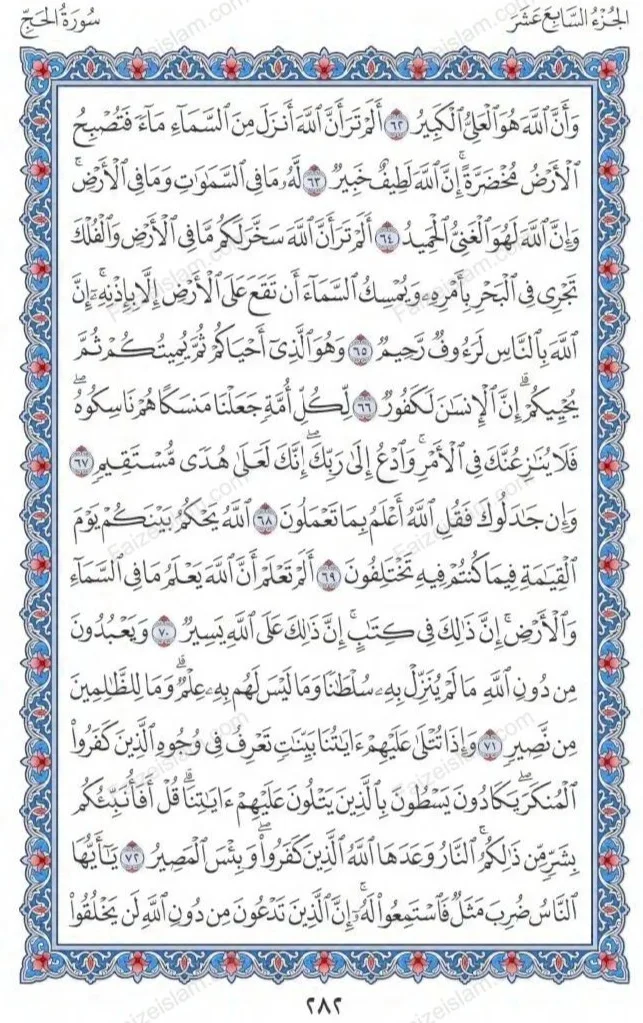 الجُزْءُ السَّابِعَ عَشَرَ
سُورَةُ الحَجِّ
وَأَنَّ ٱللَّهَ هُوَ ٱلْعَلِىُّ ٱلْكَبِيرُ ٦٢ أَلَمْ تَرَ أَنَّ ٱللَّهَ أَنزَلَ مِنَ ٱلسَّمَآءِ مَآءً فَتُصْبِحُ
ٱلْأَرْضُ مُخْضَرَّةً ۗ إِنَّ ٱللَّهَ لَطِيفٌ خَبِيرٌ ٦٣ لَّهُۥ مَا فِى ٱلسَّمَٰوَٰتِ وَمَا فِى ٱلْأَرْضِ ۗ
وَإِنَّ ٱللَّهَ لَهُوَ ٱلْغَنِىُّ ٱلْحَمِيدُ ٦٤ أَلَمْ تَرَ أَنَّ ٱللَّهَ سَخَّرَ لَكُم مَّا فِى ٱلْأَرْضِ وَٱلْفُلْكَ
تَجْرِى فِى ٱلْبَحْرِ بِأَمْرِهِۦ وَيُمْسِكُ ٱلسَّمَآءَ أَن تَقَعَ عَلَى ٱلْأَرْضِ إِلَّا بِإِذْنِهِۦٓ ۗ إِنَّ
ٱللَّهَ بِٱلنَّاسِ لَرَءُوفٌ رَّحِيمٌ ٦٥ وَهُوَ ٱلَّذِىٓ أَحْيَاكُمْ ثُمَّ يُمِيتُكُمْ ثُمَّ
يُحْيِيكُمْ ۗ إِنَّ ٱلْإِنسَٰنَ لَكَفُورٌ ٦٦ لِّكُلِّ أُمَّةٍ جَعَلْنَا مَنسَكًا هُمْ نَاسِكُوهُ ۖ
فَلَا يُنَٰزِعُنَّكَ فِى ٱلْأَمْرِ ۚ وَٱدْعُ إِلَىٰ رَبِّكَ ۖ إِنَّكَ لَعَلَىٰ هُدًى مُّسْتَقِيمٍ ٦٧
وَإِن جَٰدَلُوكَ فَقُلِ ٱللَّهُ أَعْلَمُ بِمَا تَعْمَلُونَ ٦٨ ٱللَّهُ يَحْكُمُ بَيْنَكُمْ يَوْمَ
ٱلْقِيَٰمَةِ فِيمَا كُنتُمْ فِيهِ تَخْتَلِفُونَ ٦٩ أَلَمْ تَعْلَمْ أَنَّ ٱللَّهَ يَعْلَمُ مَا فِى ٱلسَّمَآءِ
وَٱلْأَرْضِ ۗ إِنَّ ذَٰلِكَ فِى كِتَٰبٍ ۚ إِنَّ ذَٰلِكَ عَلَى ٱللَّهِ يَسِيرٌ ٧٠ وَيَعْبُدُونَ
مِن دُونِ ٱللَّهِ مَا لَمْ يُنَزِّلْ بِهِۦ سُلْطَٰنًا وَمَا لَيْسَ لَهُم بِهِۦ عِلْمٌ ۗ وَمَا لِلظَّٰلِمِينَ
مِن نَّصِيرٍ ٧١ وَإِذَا تُتْلَىٰ عَلَيْهِمْ ءَايَٰتُنَا بَيِّنَٰتٍ تَعْرِفُ فِى وُجُوهِ ٱلَّذِينَ كَفَرُوا۟
ٱلْمُنكَرَ ۖ يَكَادُونَ يَسْطُونَ بِٱلَّذِينَ يَتْلُونَ عَلَيْهِمْ ءَايَٰتِنَا ۗ قُلْ أَفَأُنَبِّئُكُم
بِشَرٍّ مِّن ذَٰلِكُمُ ۗ ٱلنَّارُ وَعَدَهَا ٱللَّهُ ٱلَّذِينَ كَفَرُوا۟ ۖ وَبِئْسَ ٱلْمَصِيرُ ٧٢ يَٰٓأَيُّهَا
ٱلنَّاسُ ضُرِبَ مَثَلٌ فَٱسْتَمِعُوا۟ لَهُۥٓ ۚ إِنَّ ٱلَّذِينَ تَدْعُونَ مِن دُونِ ٱللَّهِ لَن يَخْلُقُوا۟
٢٨٢
Faizeislam.com